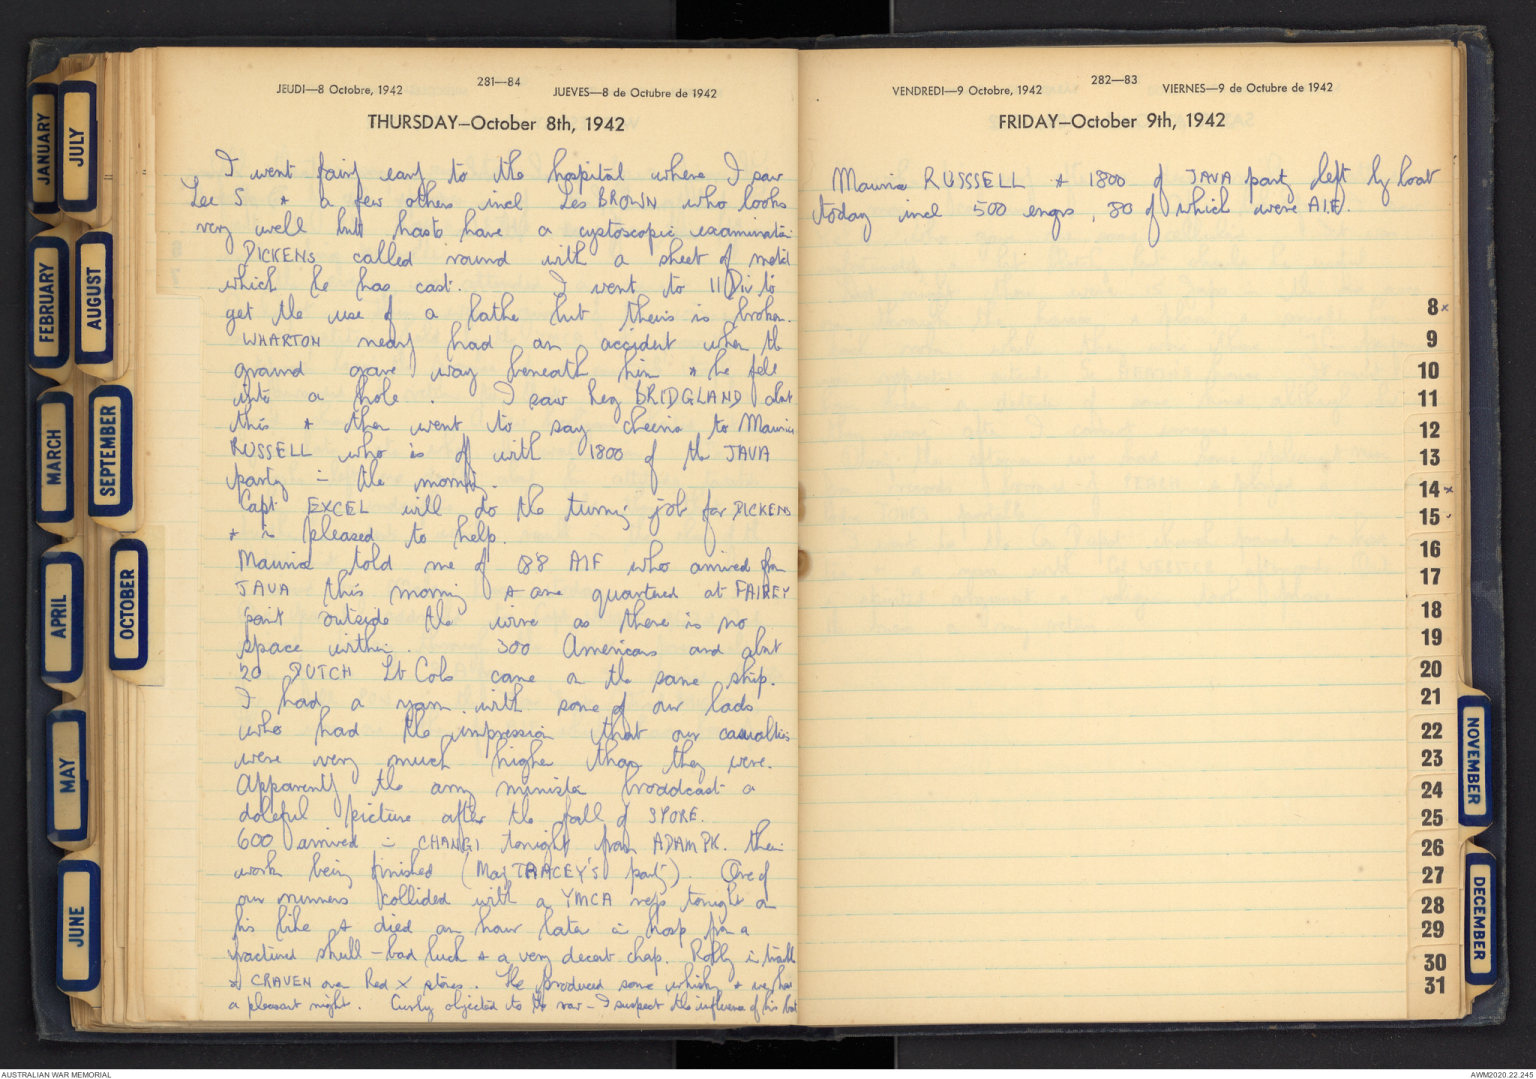 JANUARY
JULY
FEBRUARY
AUGUST
MARCH
SEPTEMBER
APRIL
OCTOBER
MAY
JUNE
281—84
JEUDI—8 Octobre, 1942 JUEVES—8 de Octubre de 1942
THURSDAY—October 8th, 1942
I went fairly early to the hospital where I saw
Lee S + a few others incl Les BROWN who looks
very well but has to have a cystoscopic examination
DICKENS called round with a sheet of metal
which he has cast. I went to 11 Div to
get the use of a lathe but theirs is broken.
WHARTON nearly had an accident when the
ground gave way beneath him + he fell
into a hole. I saw Reg BRIDGLAND abt
this + then went to say cheerio to Maurice
RUSSELL who is off with 1800 of the JAVA
party in the morning.
Capt EXCEL will do the turning job for DICKENS
+ is pleased to help.
Maurice told me of 88 AIF who arrived from
JAVA this morning + are quartered at FAIREY
point outside the wire as there is no
space within. 300 Americans and abt
20 DUTCH Lt Cols came on the same ship.
I had a yarn with some of our lads
who had the impression that our casualties
were very much higher than they were.
Apparently the army minister broadcast a
doleful picture after the fall of SPORE.
600 arrived in CHANGI tonight from ADAM PK. their
work being finished (Maj TRACEY'S party). One of
our runners collided with a YMCA reps tonight on
his bike + died an hour later in hosp from a
fractured skull – bad luck + a very decent chap. Rolly in trouble
CRAVEN over Red X stores. He produced some whisky + we have
a pleasant night. Curly objected to the war – I suspect the influence of his
282—83
VENDREDI—9 Octobre, 1942 VIERNES—9 de Octubre de 1942
FRIDAY—October 9th, 1942
Maurice RUSSSELL + 1800 of JAVA party left by boat
today incl 500 engrs, 80 of which were AIF.
8
9
10
11
12
13
14
15
16
17
18
19
20
21
22
23
24
25
26
27
28
29
30
31
NOVEMBER
DECEMBER
AUSTRALIAN WAR MEMORIAL
AWM2020.22.245